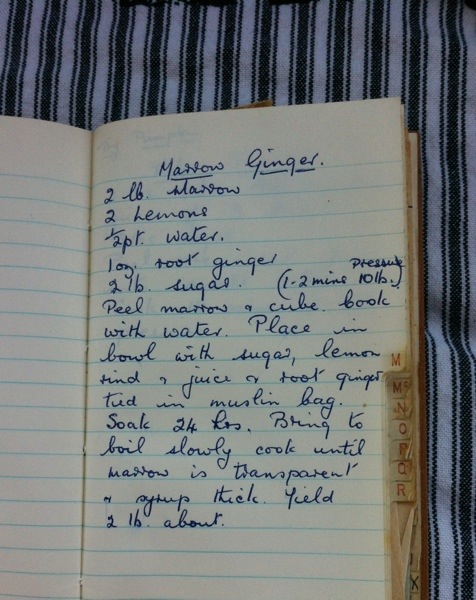 Marrow Ginger.
2 lb. Marrow
2 Lemons
½pt. water.
1oz. root ginger
2 lb. sugar. (1-2 mins 10lb. Pressure)
Peel marrow & cube. Cook
with water. Place in
bowl with sugar, lemon
rind & juice & root ginger
tied in muslin bag.
Soak 24 hrs. Bring to
boil slowly cook until
marrow is transparent
& syrup thick. Yield
2 lb. about.
M
Mc
N
O
P
Q
R
X